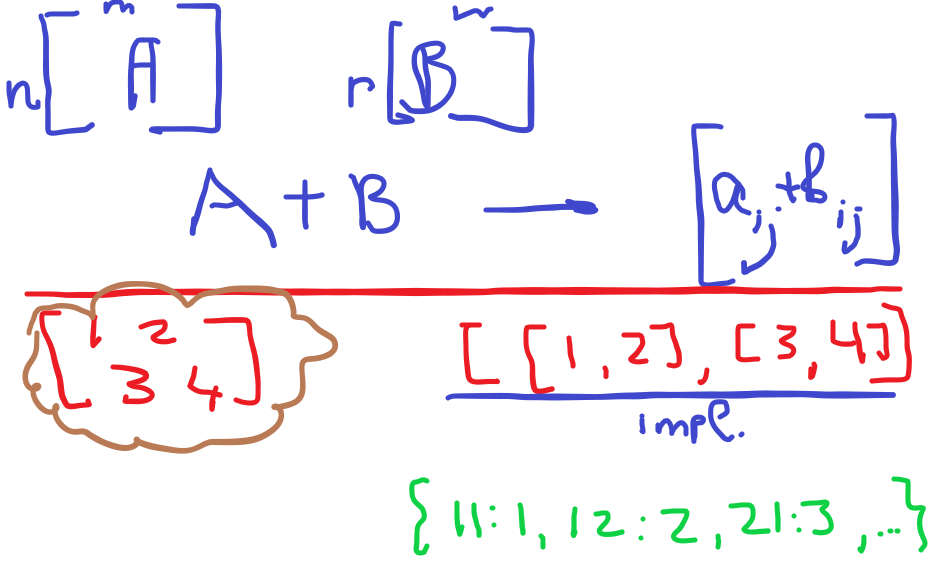 n m A r B
A + B → [a_ij + b_ij]
[1 2
3 4]
[[1, 2], [3, 4]]
impl.
{11:1, 12:2, 21:3, ...}